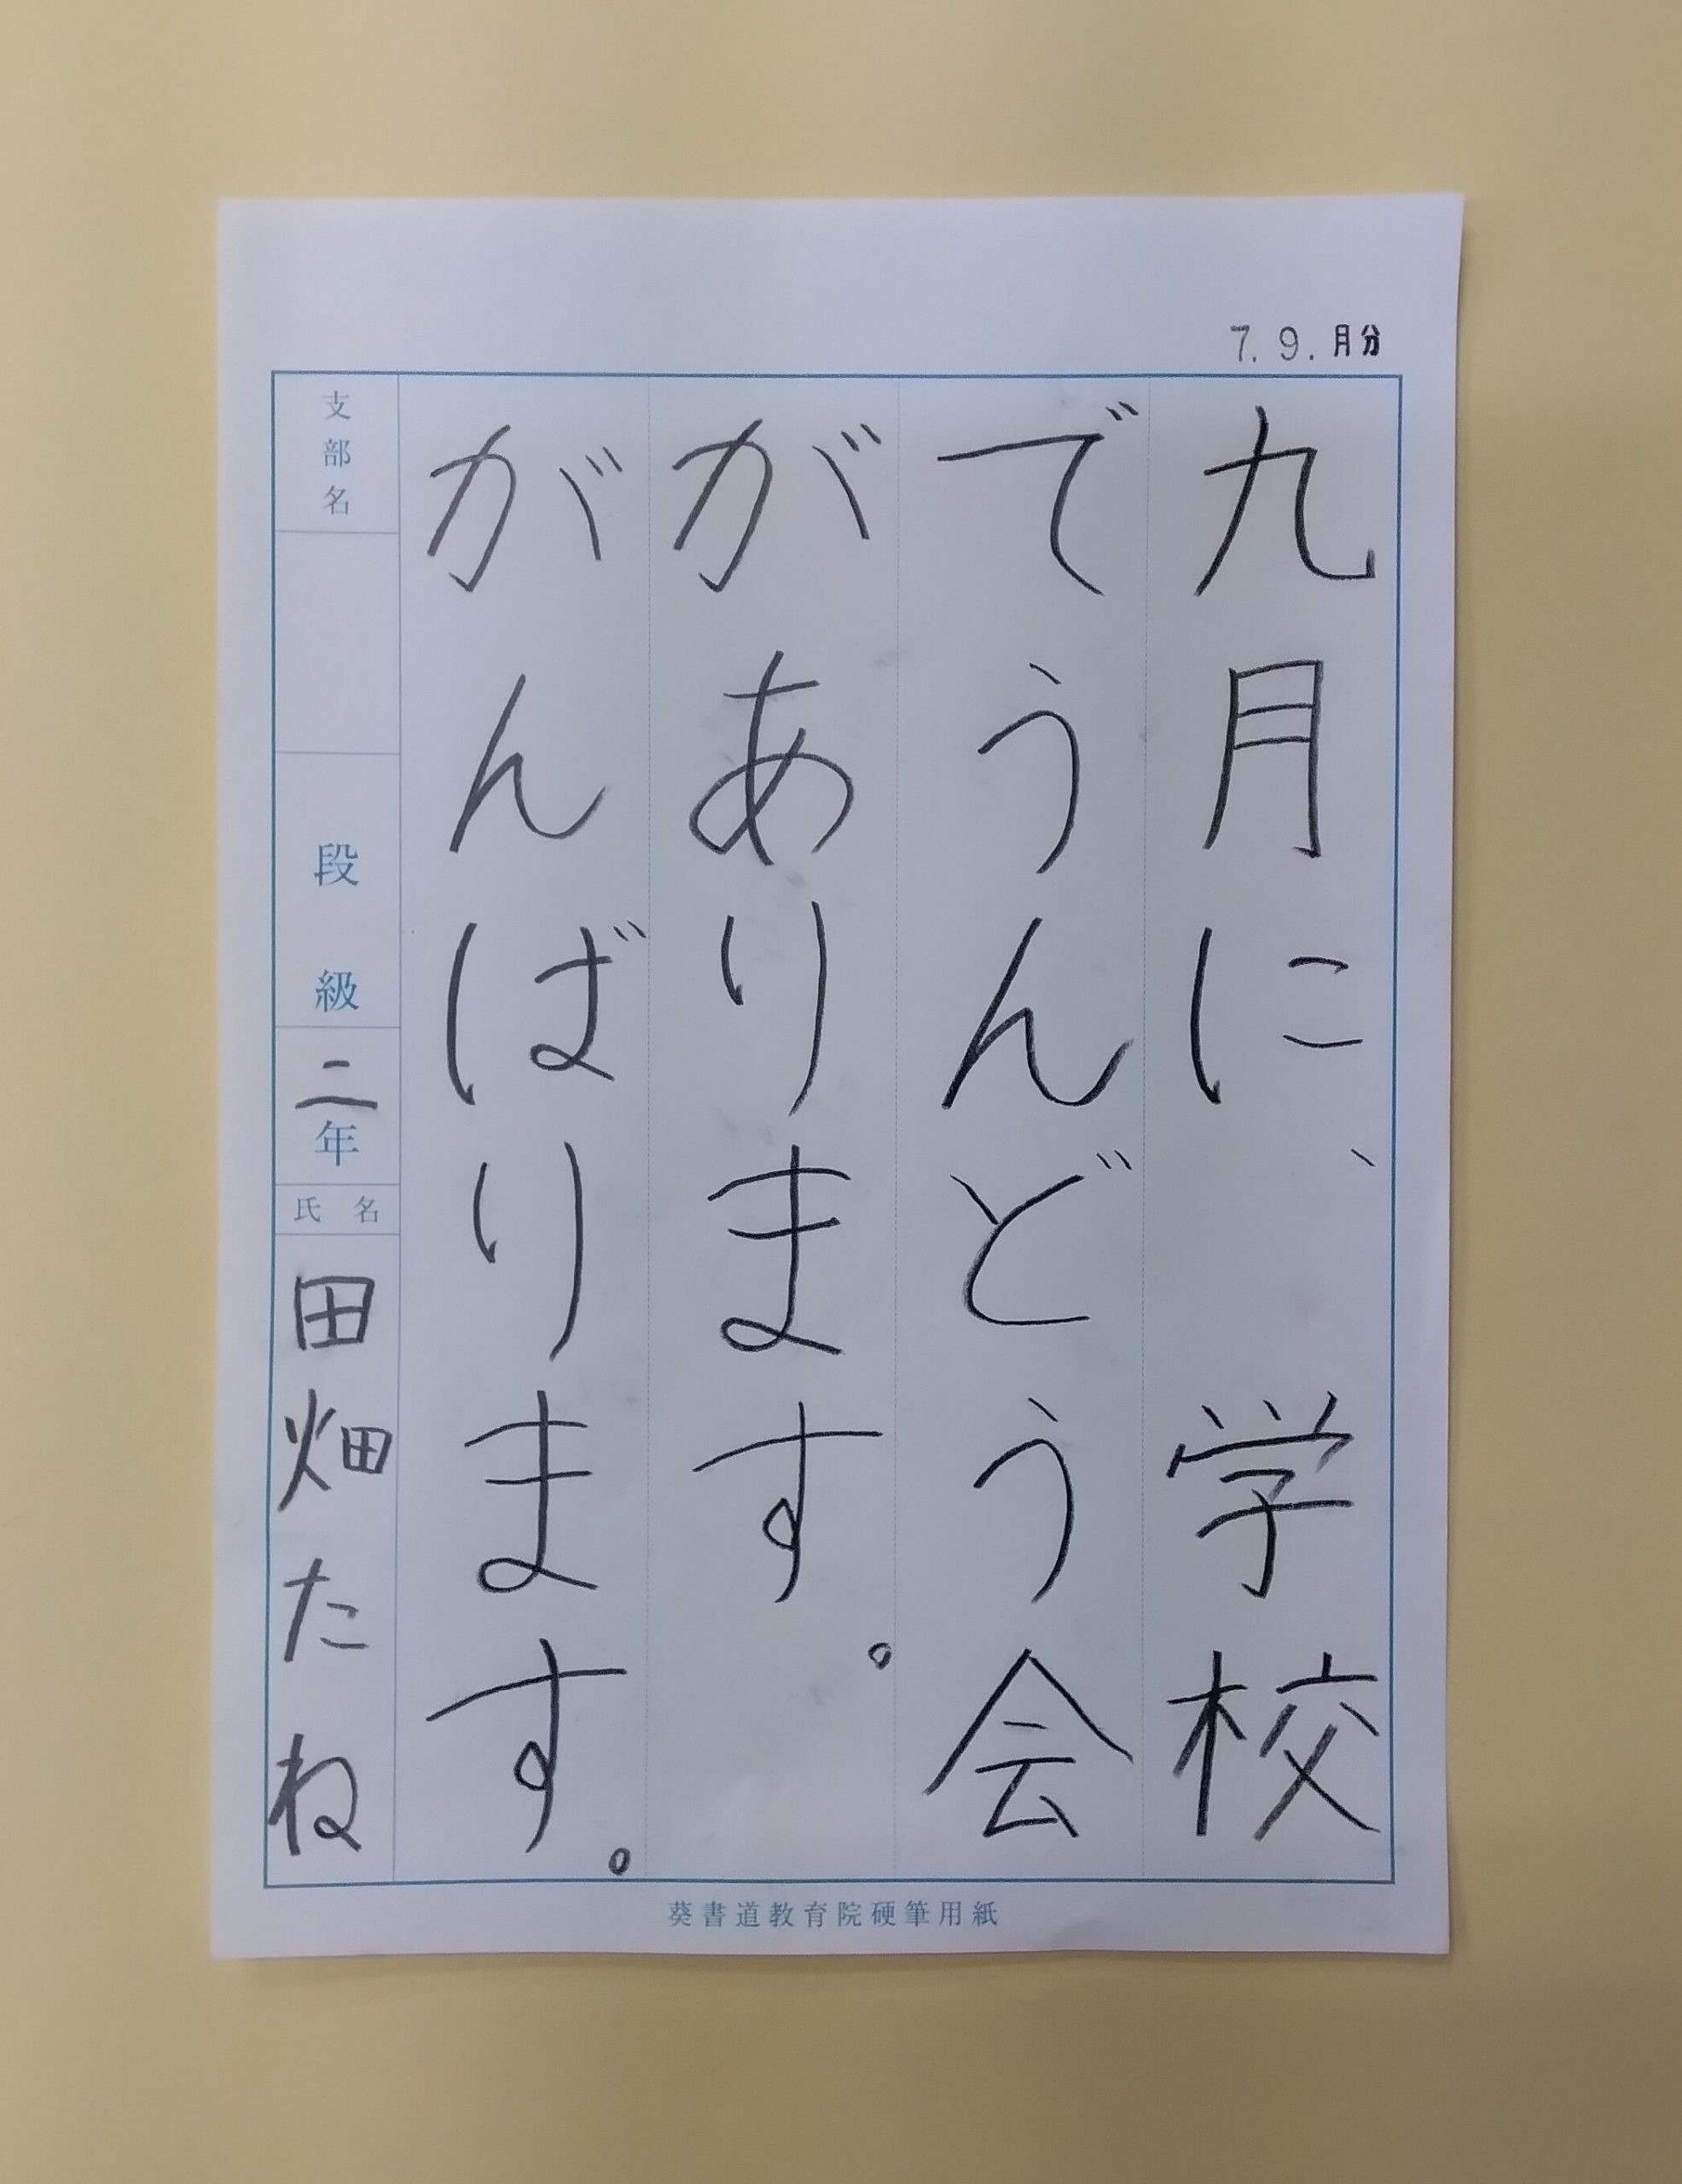 7. 9. 月分
九月に、学校
でうんどう会
があります。
がんばります。
支部名
段級
二年
氏名
田畑たね
葵書道教育院硬筆用紙